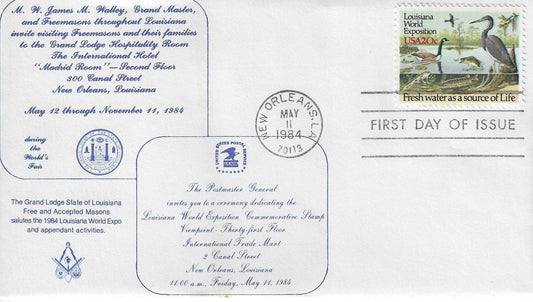 M. W. James M. Walley, Grand Master,
and Freemasons throughout Louisiana
invite visiting Freemasons and their families
to the Grand Lodge Hospitality Room
The International Hotel
"Madrid Room"—Second Floor
300 Canal Street
New Orleans, Louisiana
May 12 through November 11, 1984
during
the
World's
Fair
The Grand Lodge State of Louisiana
Free and Accepted Masons
salutes the 1984 Louisiana World Expo
and appendant activities.
UNITED STATES POSTAL SERVICE
The Postmaster General
invites you to a ceremony dedicating the
Louisiana World Exposition Commemorative Stamp
Viewpoint - Thirty-first Floor
International Trade Mart
2 Canal Street
New Orleans, Louisiana
11:00 a.m., Friday, May 11, 1984
NEW ORLEANS, LA
MAY
11
1984
70113
Louisiana
World
Exposition
USA 20c
Fresh water as a source of Life
FIRST DAY OF ISSUE